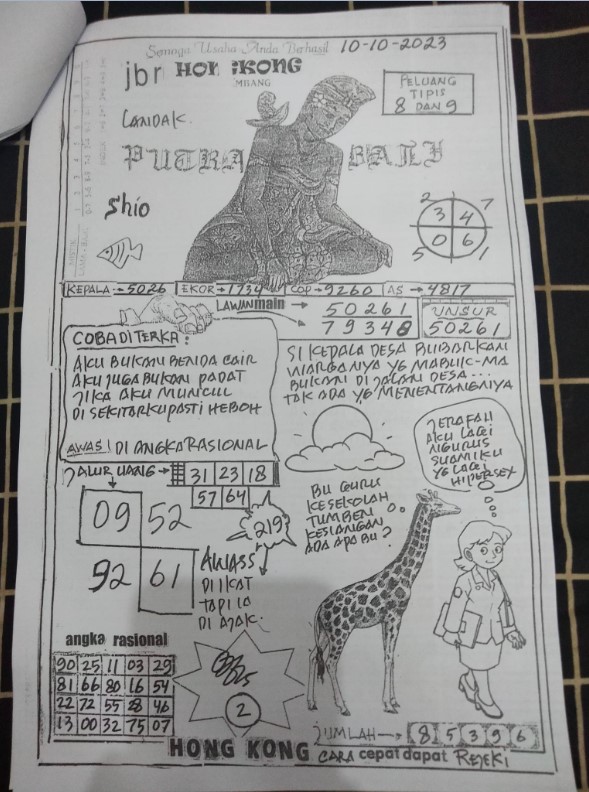 Semoga Usaha Anda Berhasil 10-10-2023
jbr HONGKONG
MBANG
PELUANG
TIPIS
8 DAN 9
LANDAK.
PUTRA BALI
Shio
2 7
3 4
0 6
5 1
KEPALA :→ 5026 EKOR→1734 COP→9260 AS→4817
LAWAN main → 50261
79348
UNSUR
50261
COBA DI TERKA :
AKU BUKAN BENDA CAIR
AKU JUGA BUKAN PADAT
JIKA AKU MUNCUL
DI SEKITARKU PASTI HEBOH
AWAS! DI ANGKA RASIONAL
SI KEPALA DESA BUBARKAN
WARGANYA YG MABUK-MA
BUKAN DI JALAN DESA...
TAK ADA YG MENENTANGNYA
JALUR UANG → 31 23 18
57 64
09 52
92 61
219
AWASS
DI IKAT
TAPI IA
DI AJAK.
BU GURU
KE SEKOLAH
TUMBEN
KESIANGAN
ADA APA BU?
JERAFAH
AKU LAGI
NGURUS
SUAMIKU
YG LAGI
HIPERSEX
angka rasional
90 25 11 03 29
81 66 80 16 54
22 72 55 28 46
13 00 32 75 07
2
JUMLAH → 8 5 3 9 6
HONG KONG CARA cepat dapat REJEKI